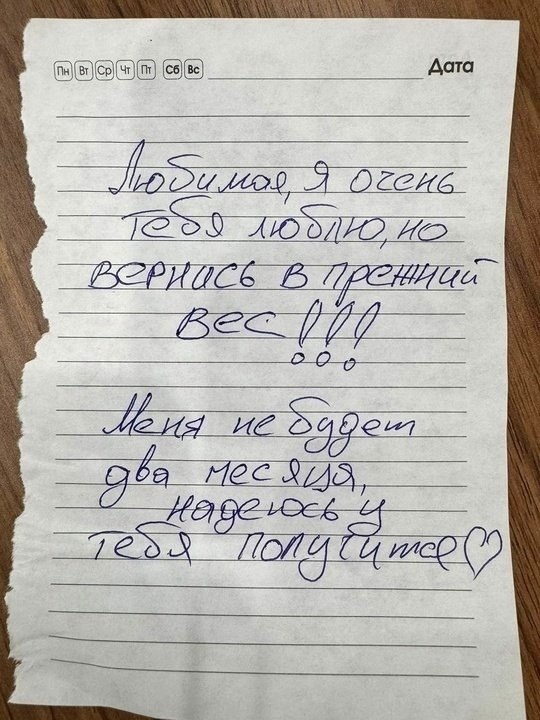 Пн Вт Ср Чт Пт Сб Вс Дата
Любимая, Я очень
тебя люблю, но
вернись в прежний
вес!!!
Меня не будет
два месяца,
надеюсь у
тебя получится♡